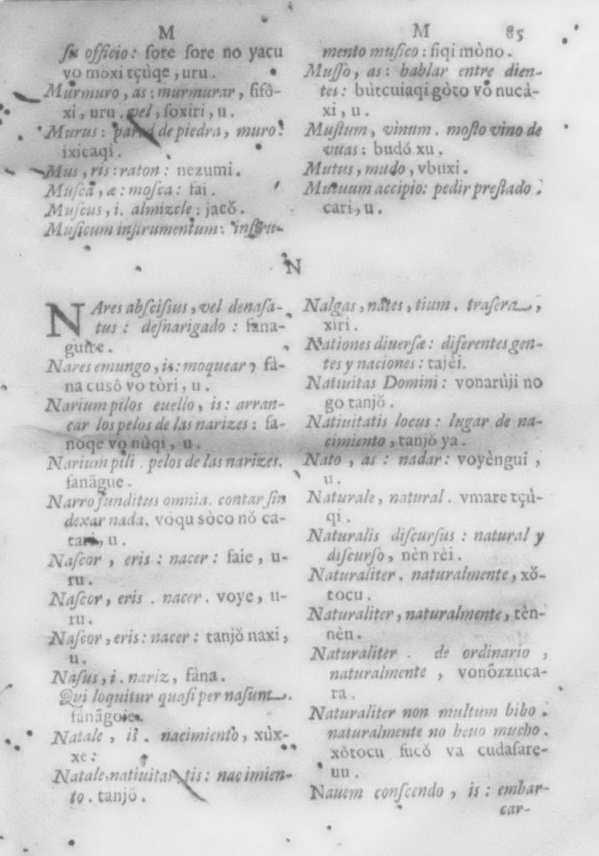 M
su officio: sore sore no yacu
vo moxi tçúqe, uru.
Murmuro, as: murmurar, sisô-
xi, uru. vel, soxiri, u.
Murus: pared de piedra, muro:
ixicaqi.
Mus, ris: raton: nezumi.
Musca, æ: mosca: fai.
Muscus, i. almizcle: jacŏ.
Musicum instrumentum: instru-
M 85
mento musico: fiqi mòno.
Musso, as: hablar entre dien-
tes: bùtcuiaqi gòto vò nucà-
xi, u.
Mustum, vinum. mosto vino de
vuas: budó xu.
Mutus, mudo, vbuxi.
Mutuum accipio: pedir prestado.
cari, u.
N
NAres abscissus, vel denasa-
tus: desnarigado: fana-
guire.
Nares emungo, is: moquear, fà-
na cusô vo tòri, u.
Narium pilos euello, is: arran-
car los pelos de las narizes: fa-
noqe vo nùqi, u.
Narium pili. pelos de las narizes.
fanãgue.
Narro funditus omnia. contar sin
dexar nada. vòqu sòco nŏ ca-
tari, u.
Nascor, eris: nacer: faie, u-
ru.
Nascor, eris. nacer. voye, u-
ru.
Nascor, eris: nacer: tanjŏ naxi,
u.
Nasus, i. nariz, fána.
Qui loquitur quasi per nasum.
fanãgoie.
Natale, is. nacimiento, xùx-
xe:
Natale, natiuitas, tis: nacimien-
to. tanjŏ.
Nalgas, nates, tium. trasera,
xiri.
Nationes diuersæ: diferentes gen-
tes y naciones: tajéi.
Natiuitas Domini: vonarùji no
go tanjŏ.
Natiuitatis locus: lugar de na-
cimiento, tanjŏ ya.
Nato, as: nadar: voyènguì,
u.
Naturale, natural. vmare tçú-
qi.
Naturalis discursus: natural y
discurso, nèn rèi.
Naturaliter. naturalmente, xŏ-
tocu.
Naturaliter, naturalmente, tèn-
nèn.
Naturaliter. de ordinario,
naturalmente, vonôzzuca-
ra.
Naturaliter non multum bibo.
naturalmente no beuo mucho.
xŏtocu sucŏ va cudasare-
uu.
Nauem conscendo, is: embar-
car-